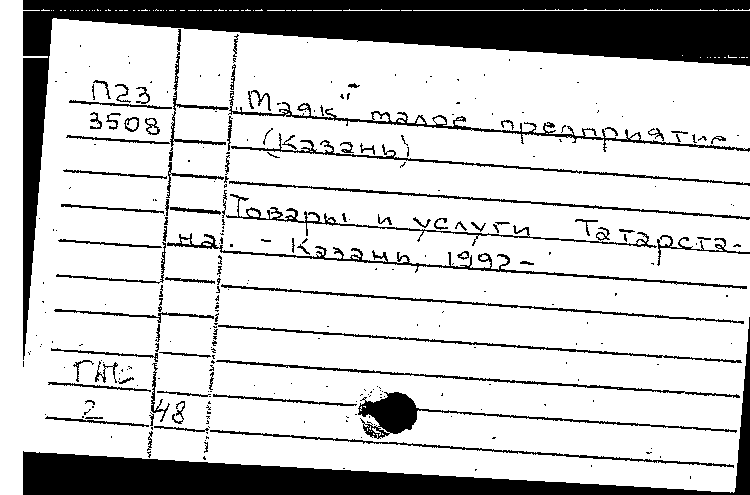 П23
3508
„Маяк“, малое предприятие
(Казань)
Товары и услуги Татарста-
на. - Казань, 1992-
2 48